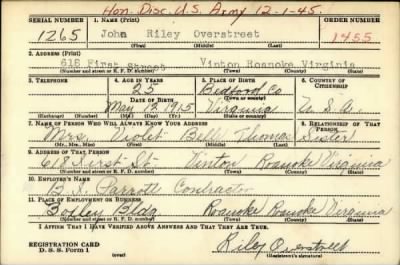 Hon. Disc. U.S. Army 12-1-45.
SERIAL NUMBER 1. NAME (Print) ORDER NUMBER
1265 John Riley Overstreet 1455
(First) (Middle) (Last)
2. ADDRESS (Print)
618 First Street Vinton Roanoke Virginia
(Number and street or R. F. D. number) (Town) (County) (State)
3. TELEPHONE 4. AGE IN YEARS 5. PLACE OF BIRTH 6. COUNTRY OF CITIZENSHIP
25 Bedford Co
DATE OF BIRTH (Town or county)
May 12 1915 Virginia U. S. A.
(Exchange) (No.) (Mo.) (Day) (Yr.) (State or country)
7. NAME OF PERSON WHO WILL ALWAYS KNOW YOUR ADDRESS 8. RELATIONSHIP OF THAT PERSON
Mrs. Violet Bell Thomas Sister
(Mr., Mrs., Miss) (First) (Middle) (Last)
9. ADDRESS OF THAT PERSON
618 First St Vinton Roanoke Virginia
(Number and street or R. F. D. number) (Town) (County) (State)
10. EMPLOYER'S NAME
Parrott Contractor
11. PLACE OF EMPLOYMENT OR BUSINESS
Bldg Roanoke Roanoke Virginia
(Number and street or R. F. D. number) (Town) (County) (State)
I AFFIRM THAT I HAVE VERIFIED ABOVE ANSWERS AND THAT THEY ARE TRUE.
REGISTRATION CARD
D. S. S. Form 1
Riley Overstreet
(Registrant's signature)